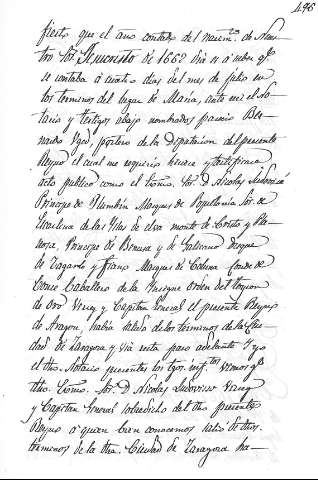 496
fiesto que el año contado del nacim.to de Nues
tro Sor. Jesucristo de 1662 dia a saber q.e
se contaba a cuatro dias del mes de julio en
los terminos del lugar de Maria, ante mi el No
tario y testigos abajo nombrados parecio Ber
nardo portero de la Diputacion del presente
Reyno el cual me requirio hiciera y testificara
acto publico como el Exmo. Sor. D Nicolas Ludovicio
Principe de Pilumbin Marques de Populonia Sor. de
Escarlena de las Yslas de elva monte de Cristo y Pla
nosa, Principe de Benusa y de Salerno Duque
de Zagarolo y Marques de Colona Conde de
Conce Caballero de la Ynsigne Orden del toyson
de Oro Virrey y Capitan General el presente Reyno
de Aragon, habia salido de los terminos de la Ciu
dad de Zaragoza y via recta paso adelante Y yo
el dho. Notario presentes los tgos. inf.tos vimos q.e
dho. Exmo. Sor. D Nicolas Ludovisio Virrey
y Capitan General sobredicho del dho. presente
Reyno a quien bien conocemos salio de dhos.
terminos de la dha. Ciudad de Zaragoza ha-